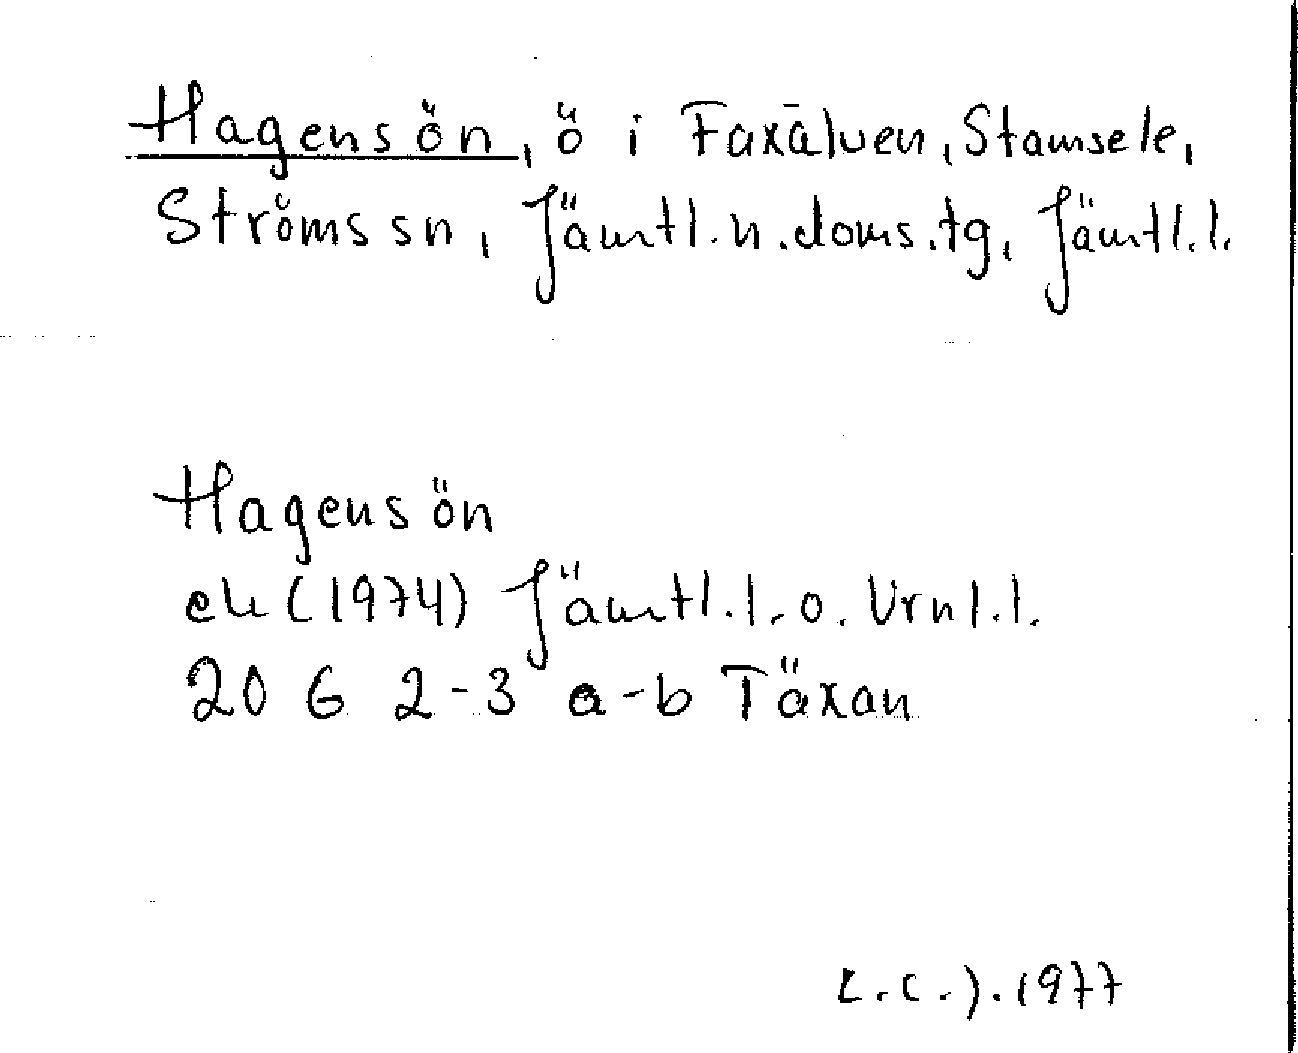 Hagensön, ö i Faxälven, Stamsele,
Ströms sn, Jämtl. n. doms. tg, Jämtl. l.
Hagensön
ek (1974) Jämtl. l. o. Vrnl. l.
20 G 2-3 a-b Täxan
L.C.J. 1977